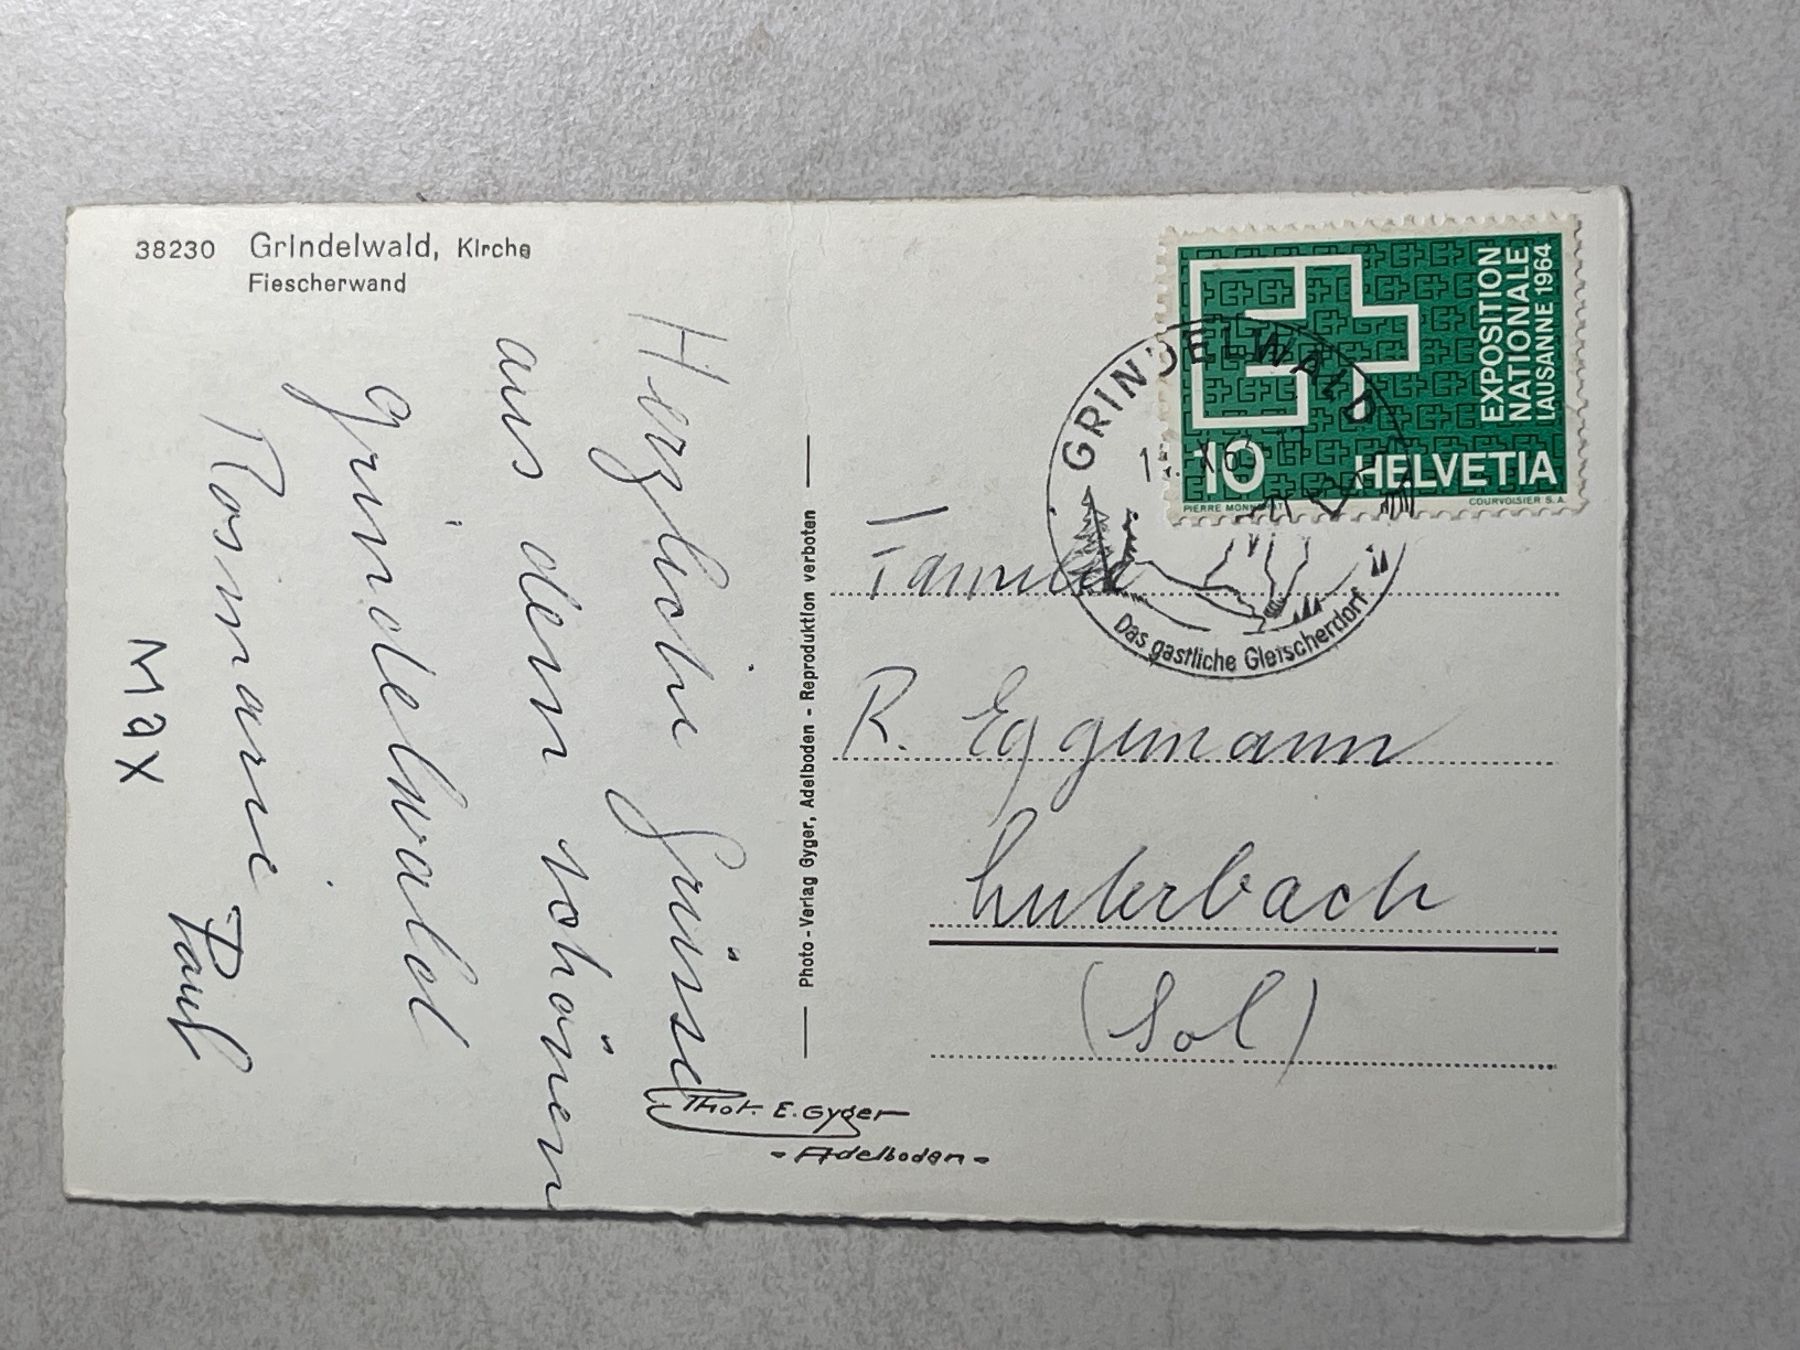 38230 Grindelwald, Kirche
Fiescherwand
Herzliche Grüsse
aus dem schönen
Grindelwald
Rosmarie Paul
Max
Photo-Verlag Gyger, Adelboden - Reproduktion verboten
Phot. E. Gyger
- Adelboden -
EXPOSITION
NATIONALE
LAUSANNE 1964
10 HELVETIA
PIERRE MONNERAT COURVOISIER S.A.
GRINDELWALD
Das gastliche Gletscherdorf
Familie
R. Eggimann
Luterbach
(Sol)